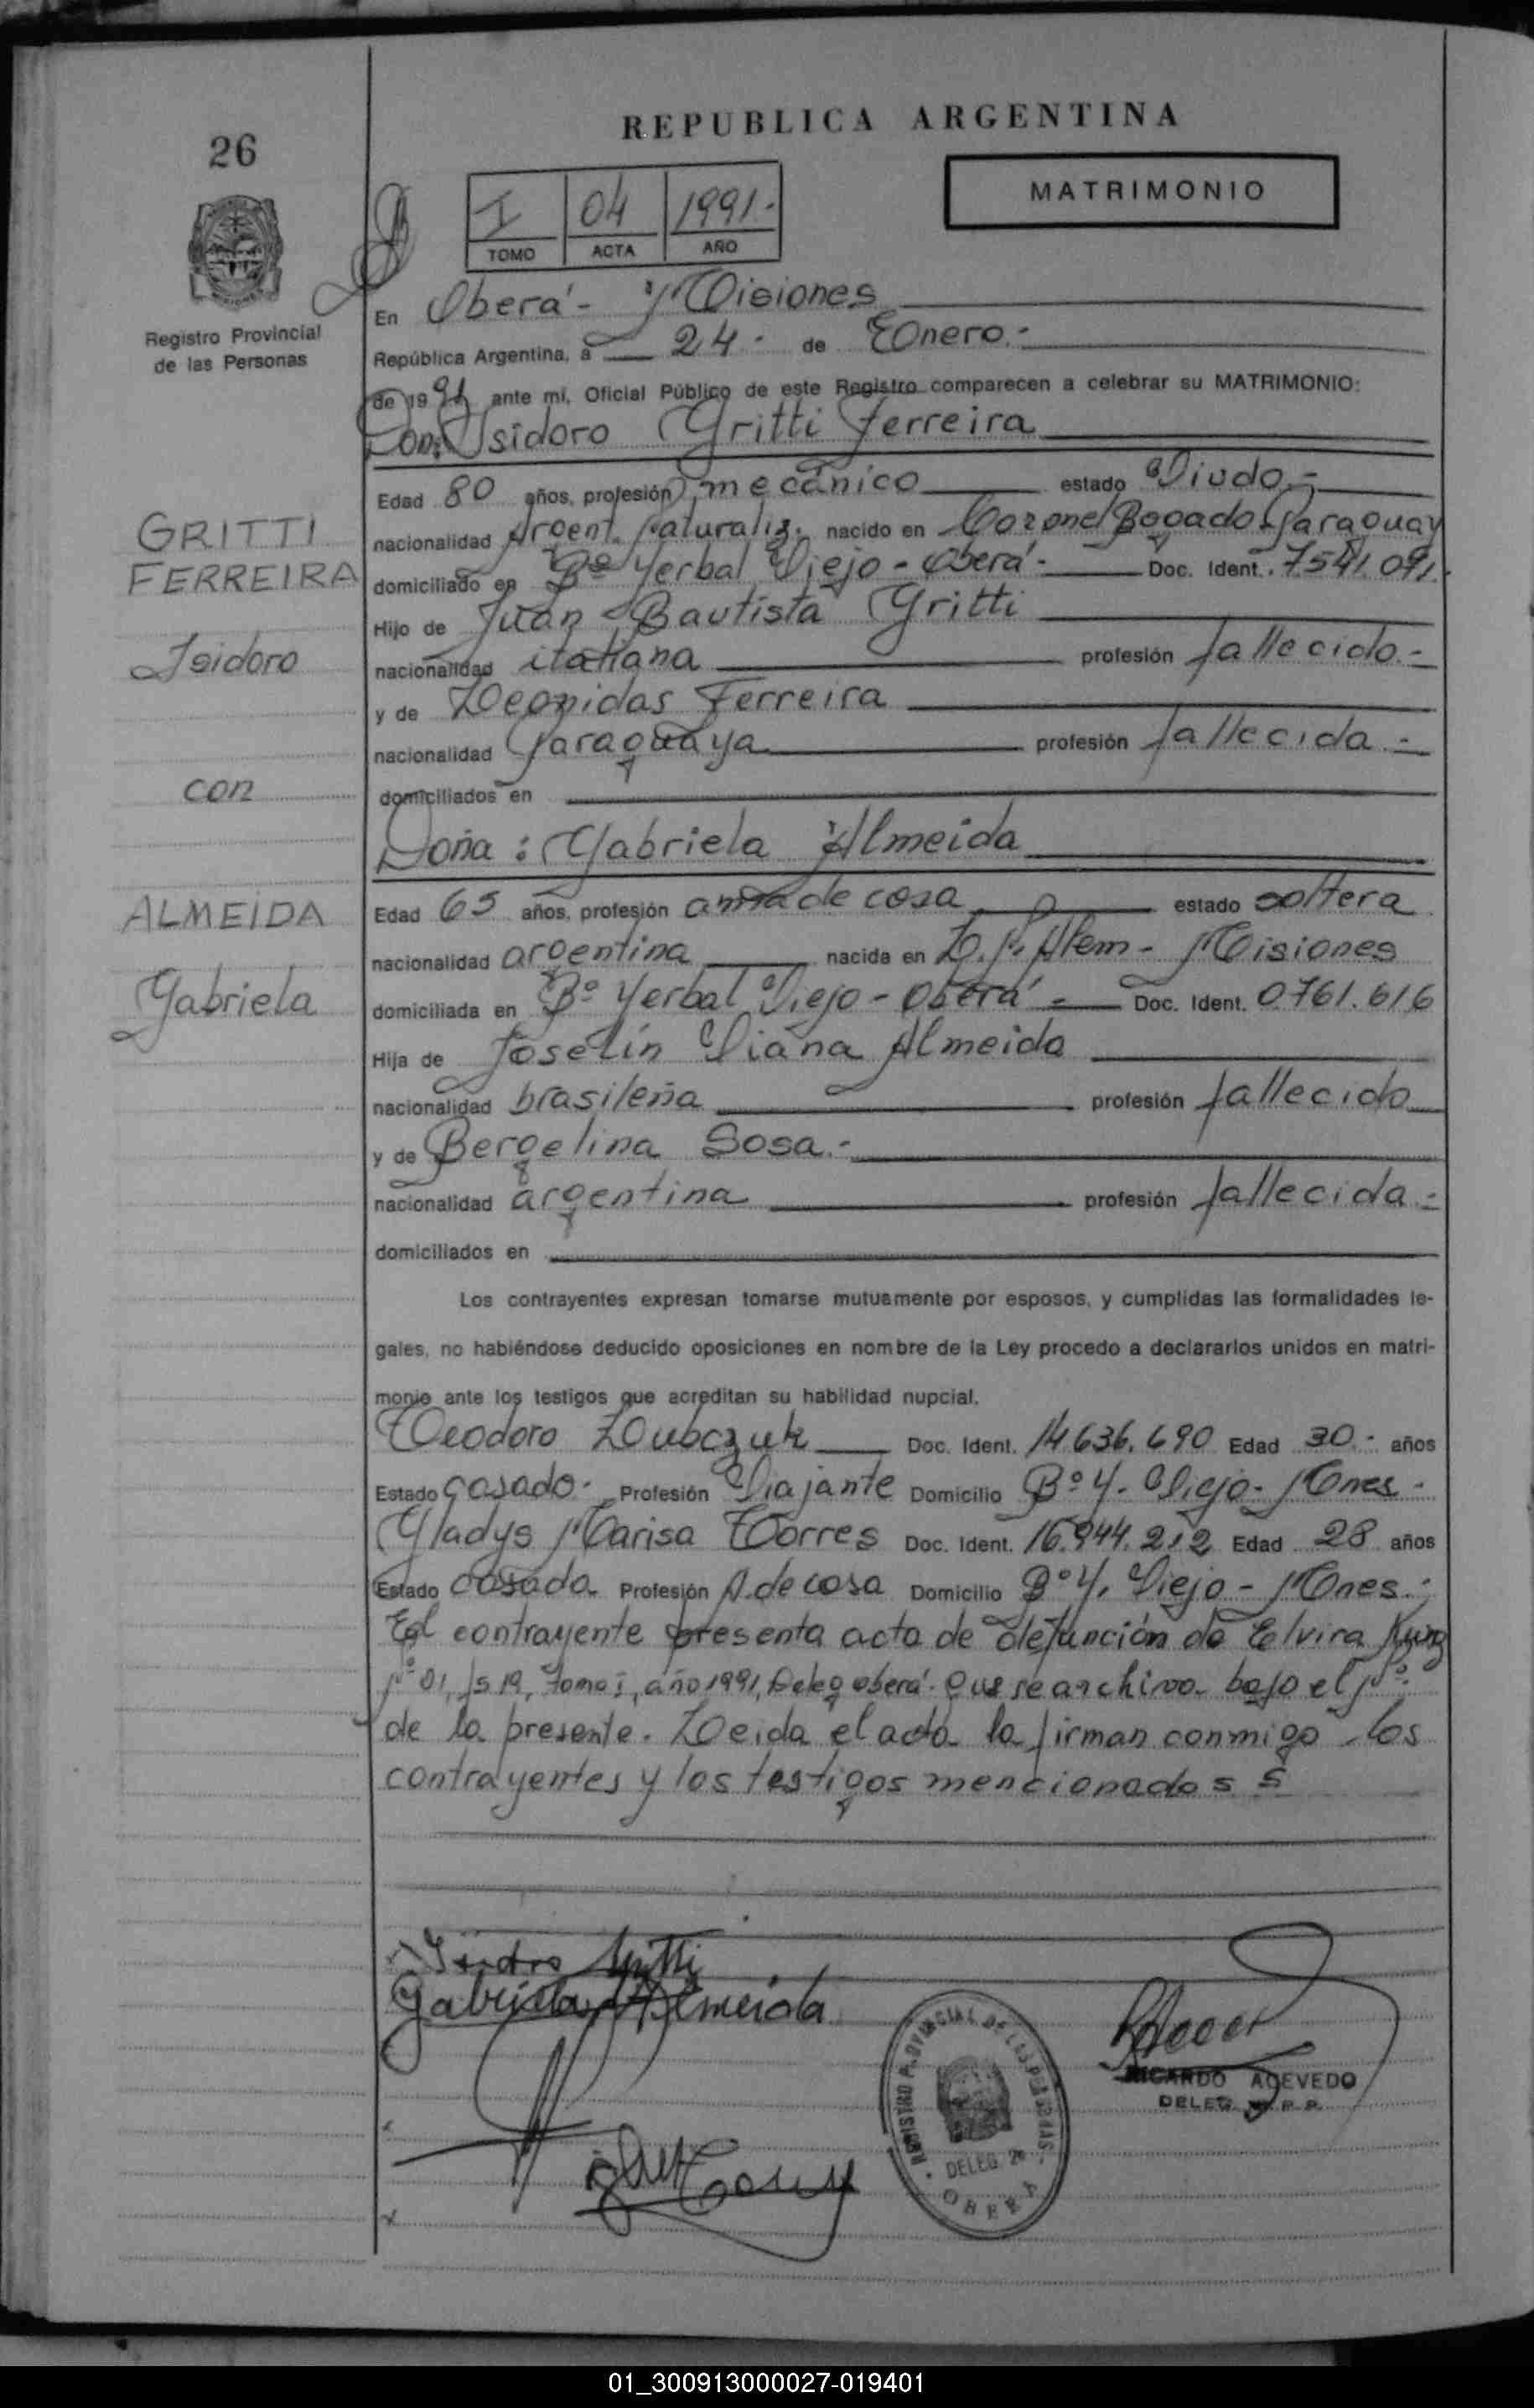 REPUBLICA ARGENTINA
26
MATRIMONIO
I 04 1991.-
TOMO ACTA AÑO
Registro Provincial
de las Personas
En Oberá - Misiones
República Argentina, a 24 - de Enero.-
de 1991 ante mí, Oficial Público de este Registro comparecen a celebrar su MATRIMONIO:
Don: Isidoro Gritti Ferreira
Edad 80 años, profesión mecánico estado Viudo.-
GRITTI
FERREIRA
Isidoro
con
ALMEIDA
Gabriela
nacionalidad Argent. Naturaliz. nacido en Coronel Bogado - Paraguay
domiciliado en Bº Yerbal Viejo - Oberá - Doc. Ident. 7.541.091.
Hijo de Juan Bautista Gritti
nacionalidad italiana profesión fallecido.-
y de Leonidas Ferreira
nacionalidad Paraguaya profesión fallecida.-
domiciliados en
Doña: Gabriela Almeida
Edad 65 años, profesión ama de casa estado soltera
nacionalidad argentina nacida en L.N. Alem - Misiones
domiciliada en Bº Yerbal Viejo - Oberá - Doc. Ident. 0.761.616
Hija de Joselín Viana Almeida
nacionalidad brasileña profesión fallecido
y de Bergelina Sosa.-
nacionalidad argentina profesión fallecida.-
domiciliados en
Los contrayentes expresan tomarse mutuamente por esposos, y cumplidas las formalidades le-
gales, no habiéndose deducido oposiciones en nombre de la Ley procedo a declararlos unidos en matri-
monio ante los testigos que acreditan su habilidad nupcial.
Teodoro Lubczuk Doc. Ident. 14.636.690 Edad 30.- años
Estado casado.- Profesión Viajante Domicilio Bº Y. Viejo - Mnes.-
Gladys Marisa Torres Doc. Ident. 16.944.212 Edad 28 años
Estado casada. Profesión A. de casa Domicilio Bº Y. Viejo - Mnes.-
El contrayente presenta acta de defunción de Elvira
Nº 01, fs 19, Tomo I, año 1991, Deleg Oberá. Que se archiva bajo el Nº
de la presente. Leida el acta la firman conmigo los
contrayentes y los testigos mencionados
Isidro Gritti
Gabriela Almeida
REGISTRO PROVINCIAL DE LAS PERSONAS
DELEG.
OBERA
RICARDO ACEVEDO
DELEG. R. P. P.
01_300913000027-019401